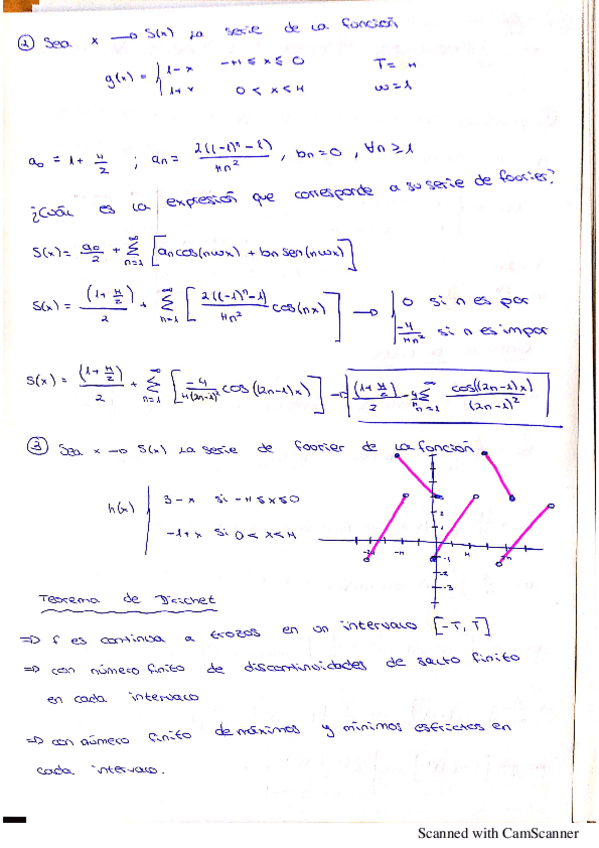 ② Sea x → S(x) la serie de la función
g(x) = { 1-x   -π ≤ x ≤ 0   T = π
1+x   0 < x < π   w=1
a₀ = 1 + π/2 ; aₙ = 2((-1)ⁿ - 1)/πn² , bₙ = 0 , ∀n ≥ 1
¿Cuál es la expresión que corresponde a su serie de fourier?
S(x) = a₀/2 + ∞Σn=1 [aₙ cos(nwx) + bₙ sen(nwx)]
S(x) = (1 + π/2)/2 + ∞Σn=1 [2((-1)ⁿ - 1)/πn² cos(nx)] → { 0 si n es par
-4/πn² si n es impar
S(x) = (1 + π/2)/2 + ∞Σn=1 [-4/π(2n-1)² cos((2n-1)x)] → (1 + π/2)/2 - 4/π ∞Σn=1 cos((2n-1)x)/(2n-1)²
③ Sea x → S(x) la serie de fourier de la función
h(x) { 3-x si -π ≤ x ≤ 0
-1+x si 0 < x < π
3
2
-1
-2
-3
-2π -π π 2π
Teorema de Dirichet
⇒ f es continua a trozos en un intervalo [-T, T]
⇒ con número finito de discontinuidades de salto finito
en cada intervalo
⇒ con número finito de máximos y mínimos estrictos en
cada intervalo.
Scanned with CamScanner